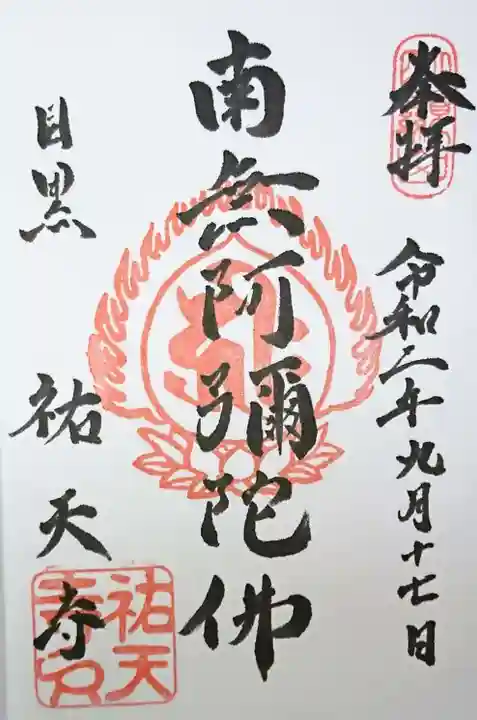 奉拝
令和二年九月十七日
南無阿彌陀佛
目黒
祐天寺